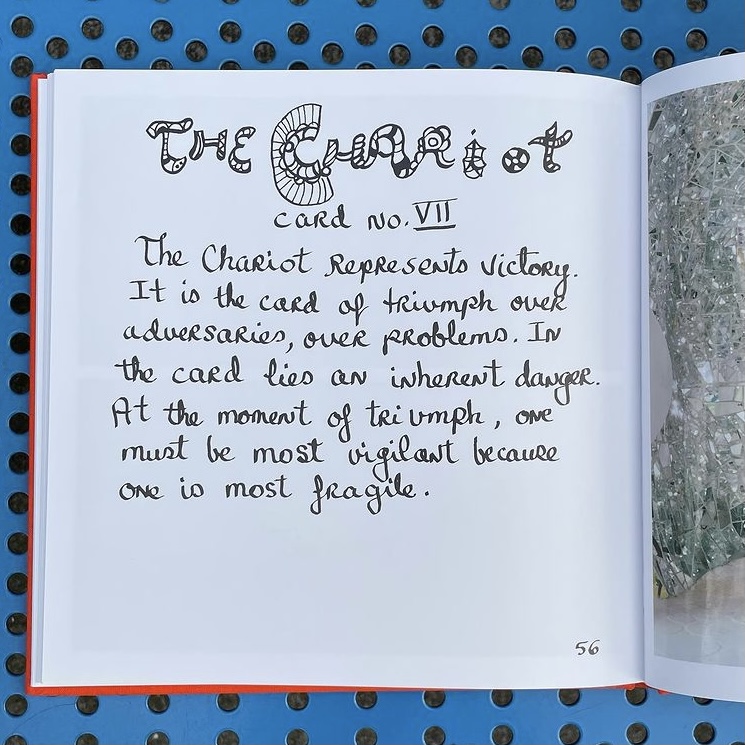 THE CHARiot
card no. VII
The Chariot Represents victory.
It is the card of triumph over
adversaries, over problems. In
the card lies an inherent danger.
At the moment of triumph, one
must be most vigilant because
one is most fragile.
56